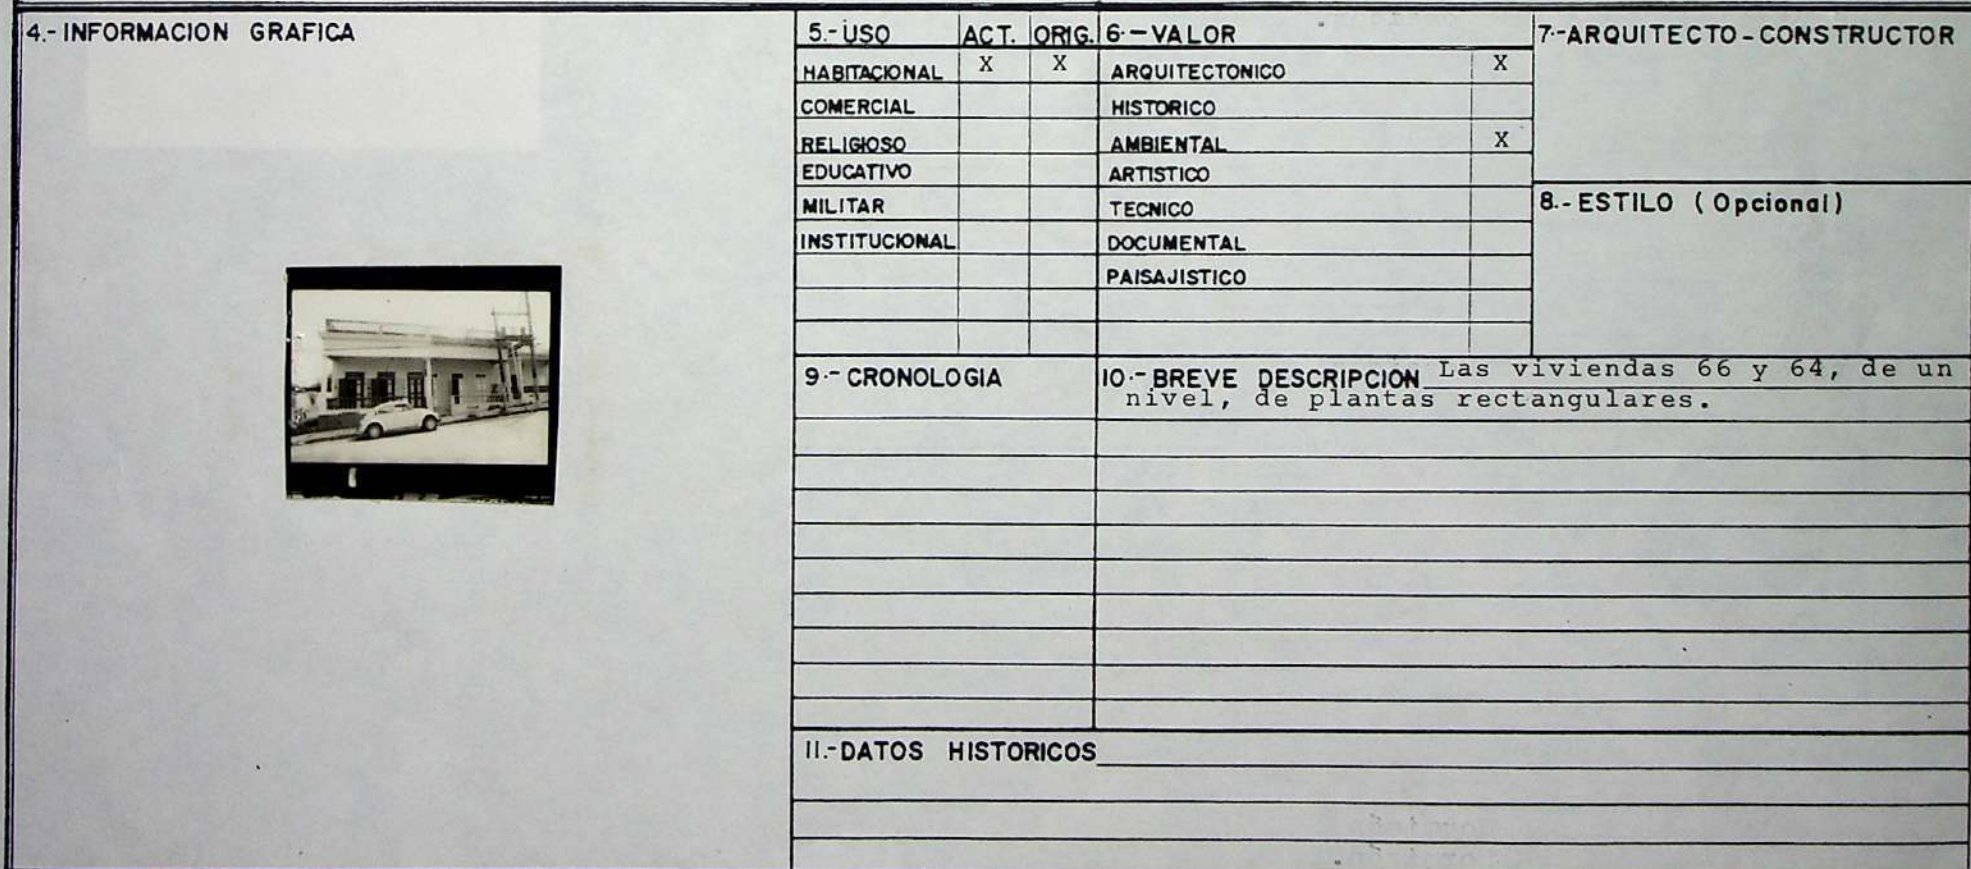 4.- INFORMACION GRAFICA
5.- USO ACT. ORIG.
HABITACIONAL X X
COMERCIAL
RELIGIOSO
EDUCATIVO
MILITAR
INSTITUCIONAL
6.- VALOR
ARQUITECTONICO X
HISTORICO
AMBIENTAL X
ARTISTICO
TECNICO
DOCUMENTAL
PAISAJISTICO
7.- ARQUITECTO - CONSTRUCTOR
8.- ESTILO ( Opcional )
9.- CRONOLOGIA
10.- BREVE DESCRIPCION Las viviendas 66 y 64, de un
nivel, de plantas rectangulares.
11.- DATOS HISTORICOS